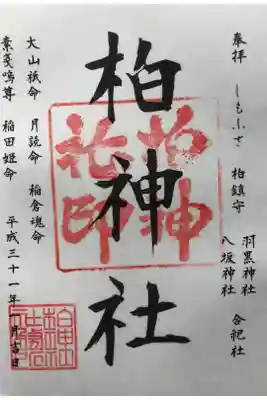 奉拝 しもふさ 柏鎮守
羽黒神社
八坂神社
合祀社
柏神社
柏神
社印
大山祇命 月読命 稲倉魂命
素戔嗚尊 稲田姫命 平成三十一年一月吉日